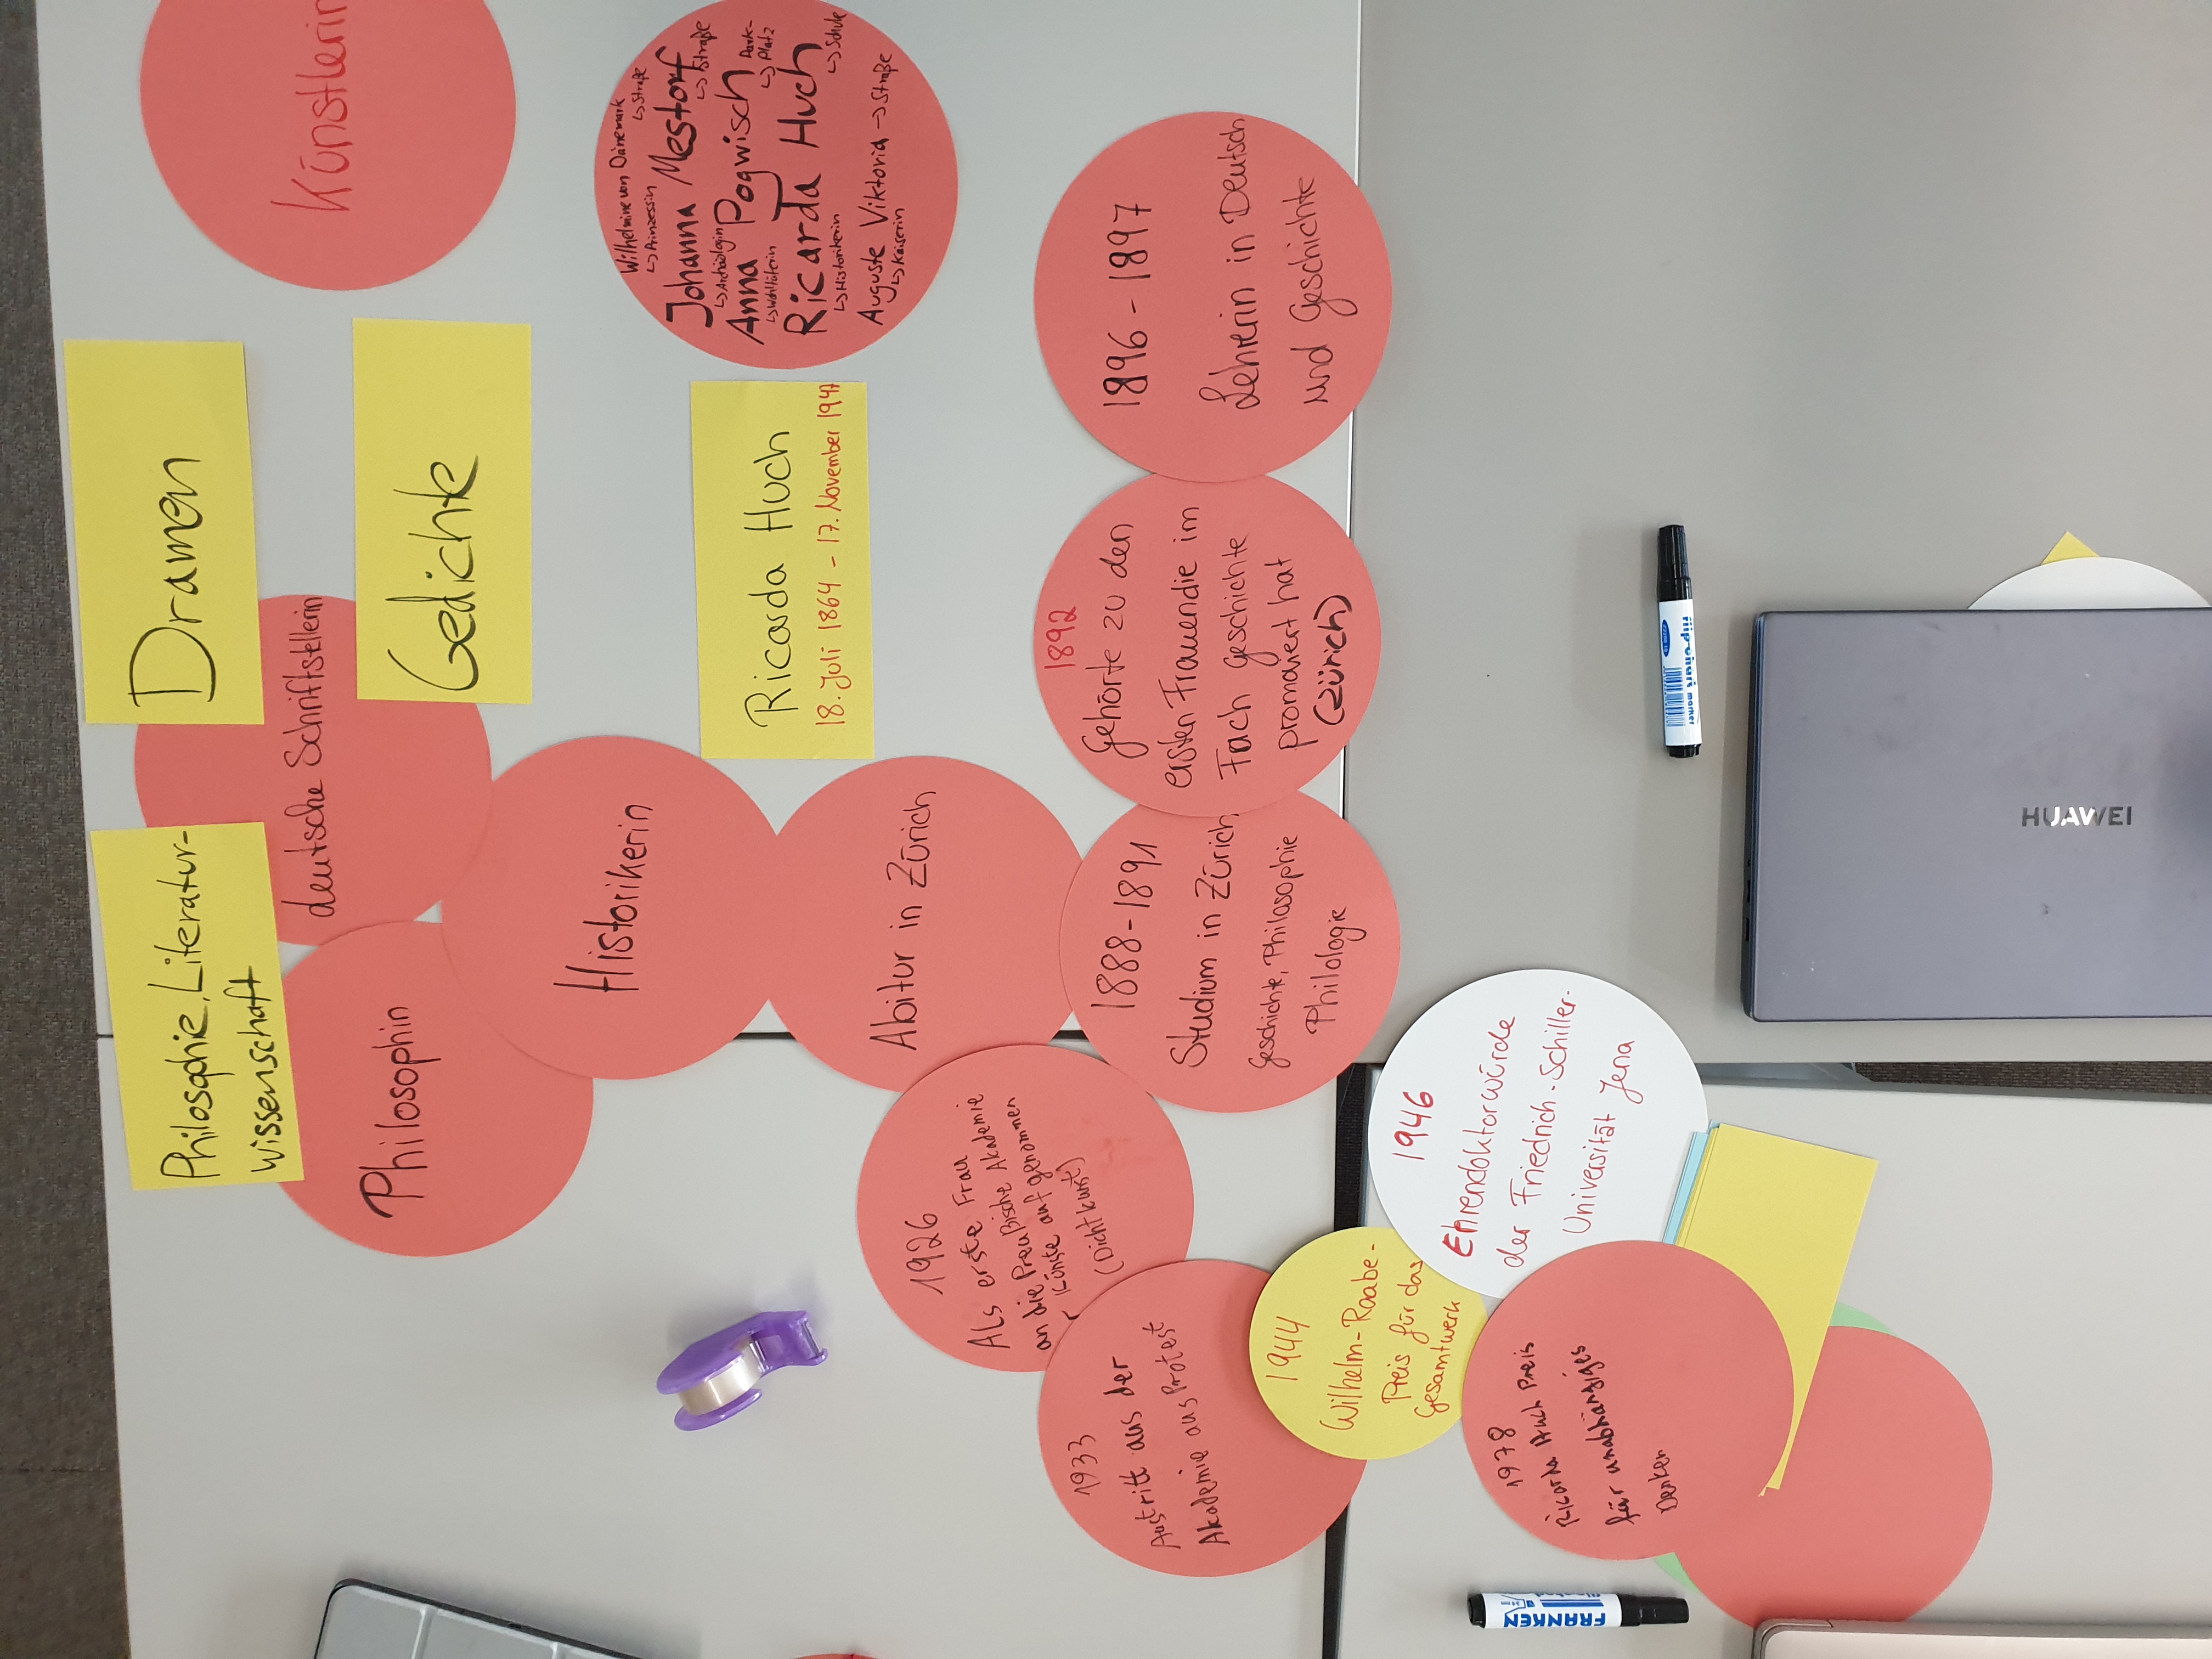 Philosophie, Literatur-
wissenschaft
Dramen
deutsche Schriftstellerin
Künstlerin
Philosophin
Gedichte
Historikerin
Wilhelmine von Dänemark
↳ Straße
↳ Prinzessin
Johanna Mestorf
↳ Straße
↳ Archäologin
Anna Pogwisch
Park-
↳ Platz
↳ Wohltäterin
Ricarda Huch
↳ Schule
↳ Historikerin
Auguste Viktoria → Straße
↳ Kaiserin
Ricarda Huch
18. Juli 1864 - 17. November 1947
Abitur in Zürich
1926
Als erste Frau
an die Preußische Akademie
r Künste aufgenommen
(Dichtkunst)
1933
Austritt aus der
Akademie aus Protest
1888-1891
Studium in Zürich
Geschichte, Philosophie
Philologie
1892
Gehörte zu den
ersten Frauen die im
Fach Geschichte
promoviert hat
(Zürich)
1896 - 1897
Lehrerin in Deutsch
und Geschichte
1944
Wilhelm-Raabe-
Preis für das
Gesamtwerk
1946
Ehrendoktorwürde
der Friedrich-Schiller-
Universität Jena
1978
Ricarda Huch Preis
für unabhängiges
Denken
FRANKEN
flip-chart
marker
HUAWEI